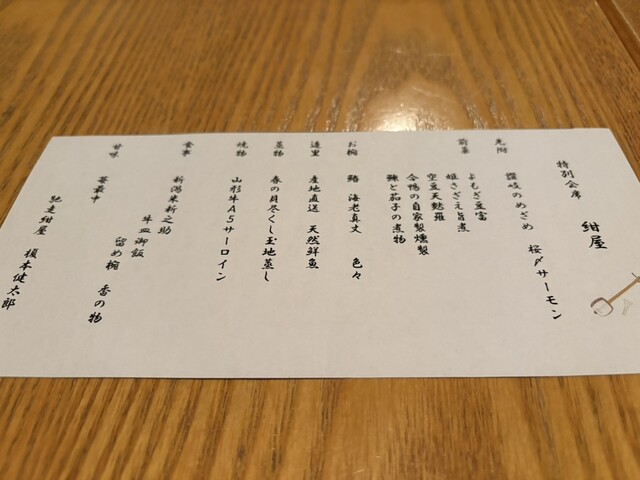 特別会席　紺屋
先附　讃岐のめざめ　桜〆サーモン
前菜　よもぎ豆富
姫さざえ旨煮
空豆天麩羅
合鴨の自家製燻製
鰊と茄子の煮物
お椀　蛤　海老真丈　色々
造里　産地直送　天然鮮魚
蒸物　春の貝尽くし玉地蒸し
焼物　山形牛A5サーロイン
食事　新潟米新之助
牛皿御飯
留め椀　香の物
甘味　苺最中
馳走紺屋　榎本健太郎